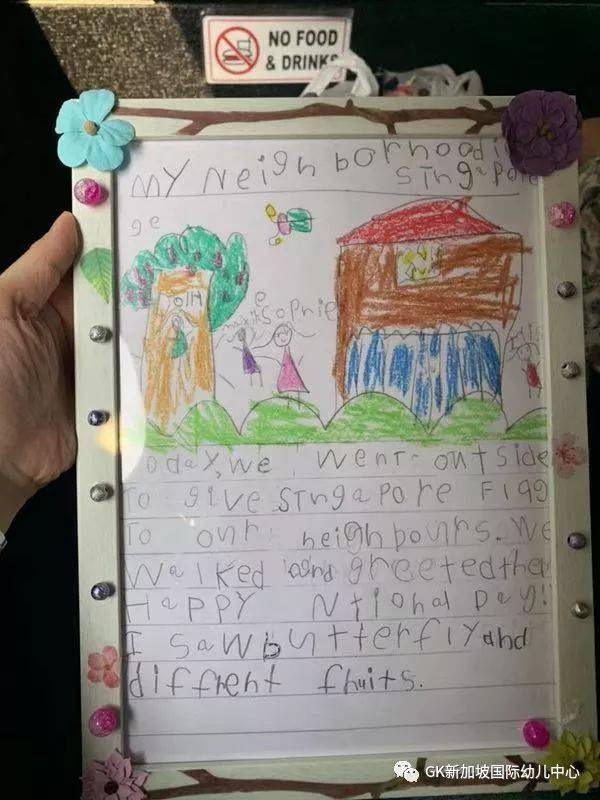 NO FOOD
& DRINKS
MY Neighborhood in
Singapore
ge
Olli
Sophie
Today, we went outside
To give Singapore Flag
To our neighbours. We
Walked and greeted them
Happy Ntional Day!
I saw butterfly and
diffrent fruits.
GK新加坡国际幼儿中心